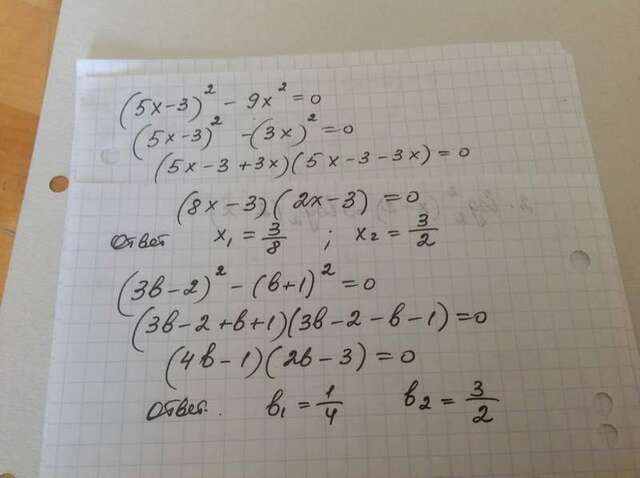 (5x-3)² - 9x² = 0
(5x-3)² - (3x)² = 0
(5x-3+3x)(5x-3-3x) = 0
(8x-3)(2x-3) = 0
Ответ x₁ = 3/8 ; x₂ = 3/2
(3в-2)² - (в+1)² = 0
(3в-2+в+1)(3в-2-в-1)=0
(4в-1)(2в-3)=0
Ответ. в₁ = 1/4 в₂ = 3/2